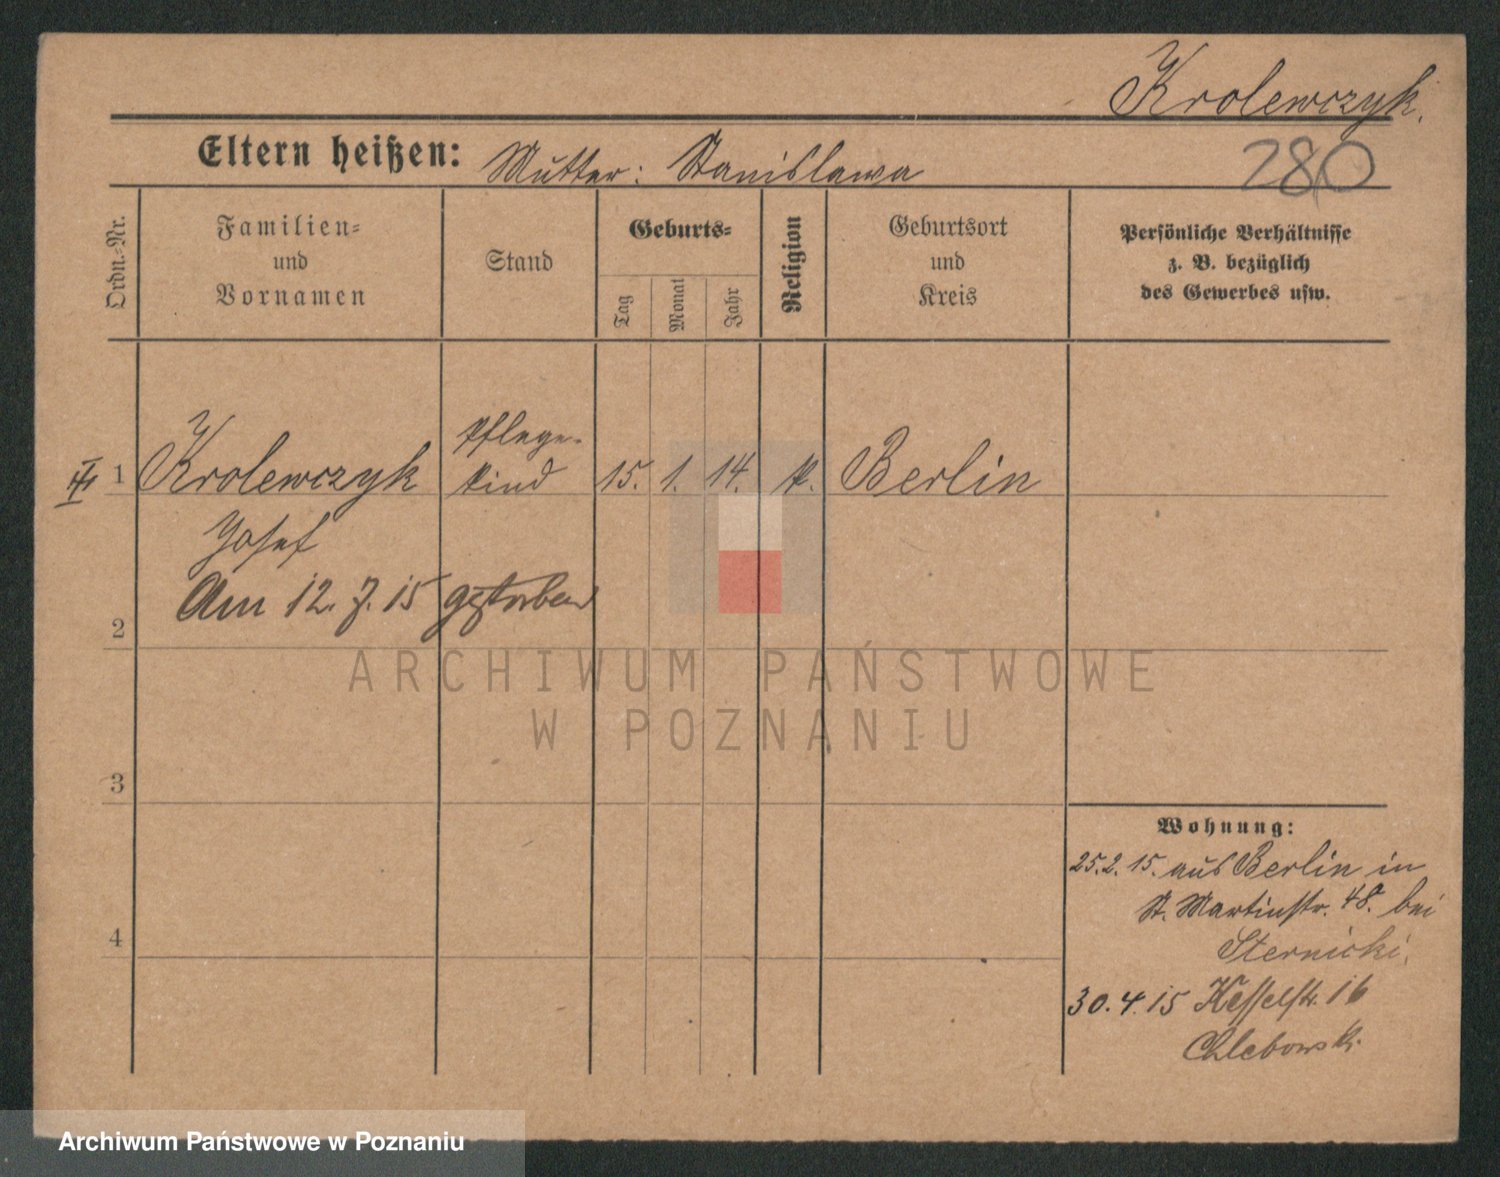 Krolewczyk.
Eltern heißen: Mutter: Stanislawa
280
Ordn.-Nr.
Familien-
und
Vornamen
Stand
Geburts-
Tag
Monat
Jahr
Religion
Geburtsort
und
Kreis
Persönliche Verhältnisse
z. B. bezüglich
des Gewerbes usw.
1 Krolewczyk Pflege-
kind 15. 1. 14. k. Berlin
Josef
Am 12. 7. 15 gestorben
2
3
4
Wohnung:
25.2.15. aus Berlin in
St. Martinstr. 48. bei
Sternicki.
30.4.15 Kesselstr. 16
Chlebowski
ARCHIWUM PAŃSTWOWE
W POZNANIU
Archiwum Państwowe w Poznaniu